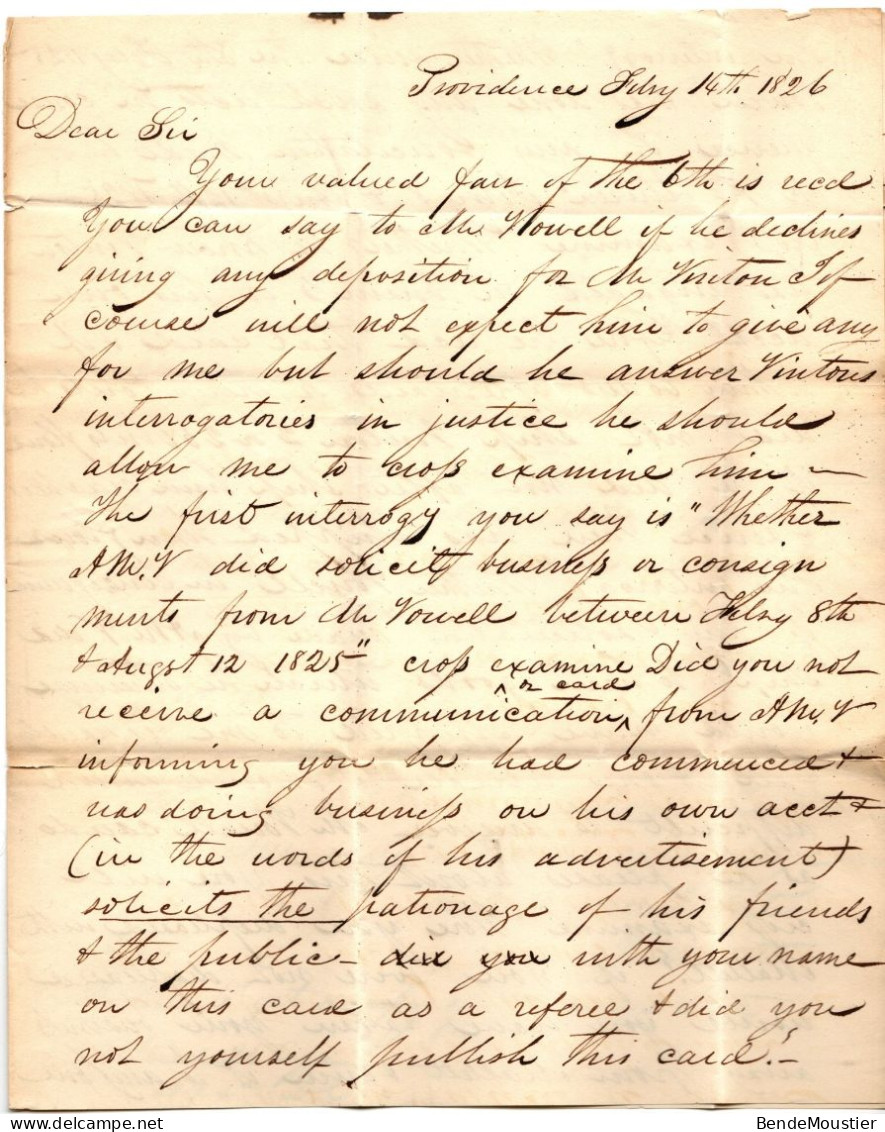 Providence Feby 14th 1826
Dear Sir
Your valued favr of the 6th is recd
You can say to Mr. Vowell if he declines
giving any deposition for Mr Vinton I of
course will not expect him to give any
for me but should he answer Vintons
interrogatories in justice he should
allow me to cross examine him —
The first interrogy you say is "Whether
A M. V did solicit business or consign
ments from Mr Vowell between Feby 8th
& Augst 12 1825" cross examine Did you not
receive a communication or card from A M. V
informing you he had commenced &
was doing business on his own acct &
(in the words of his advertisement)
solicits the patronage of his friends
& the public – did you with your name
on this card as a referee & did you
not yourself publish this card? –
www.BendeMoustier.com